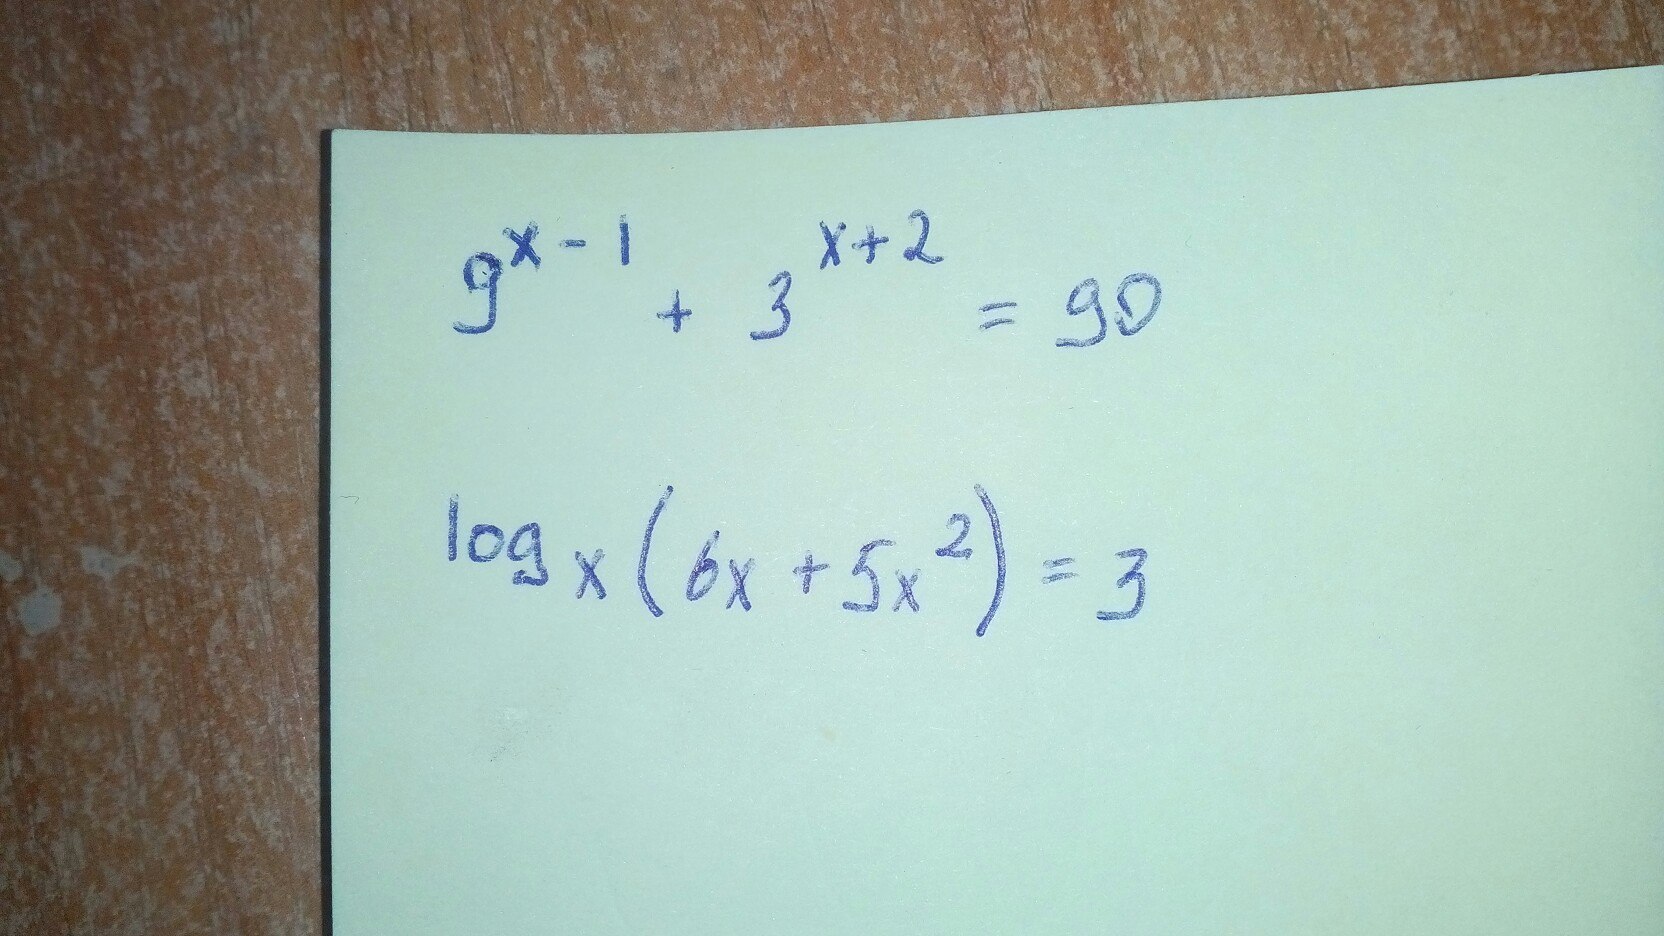 9^{x-1} + 3^{x+2} = 90
log_x (6x + 5x^2) = 3